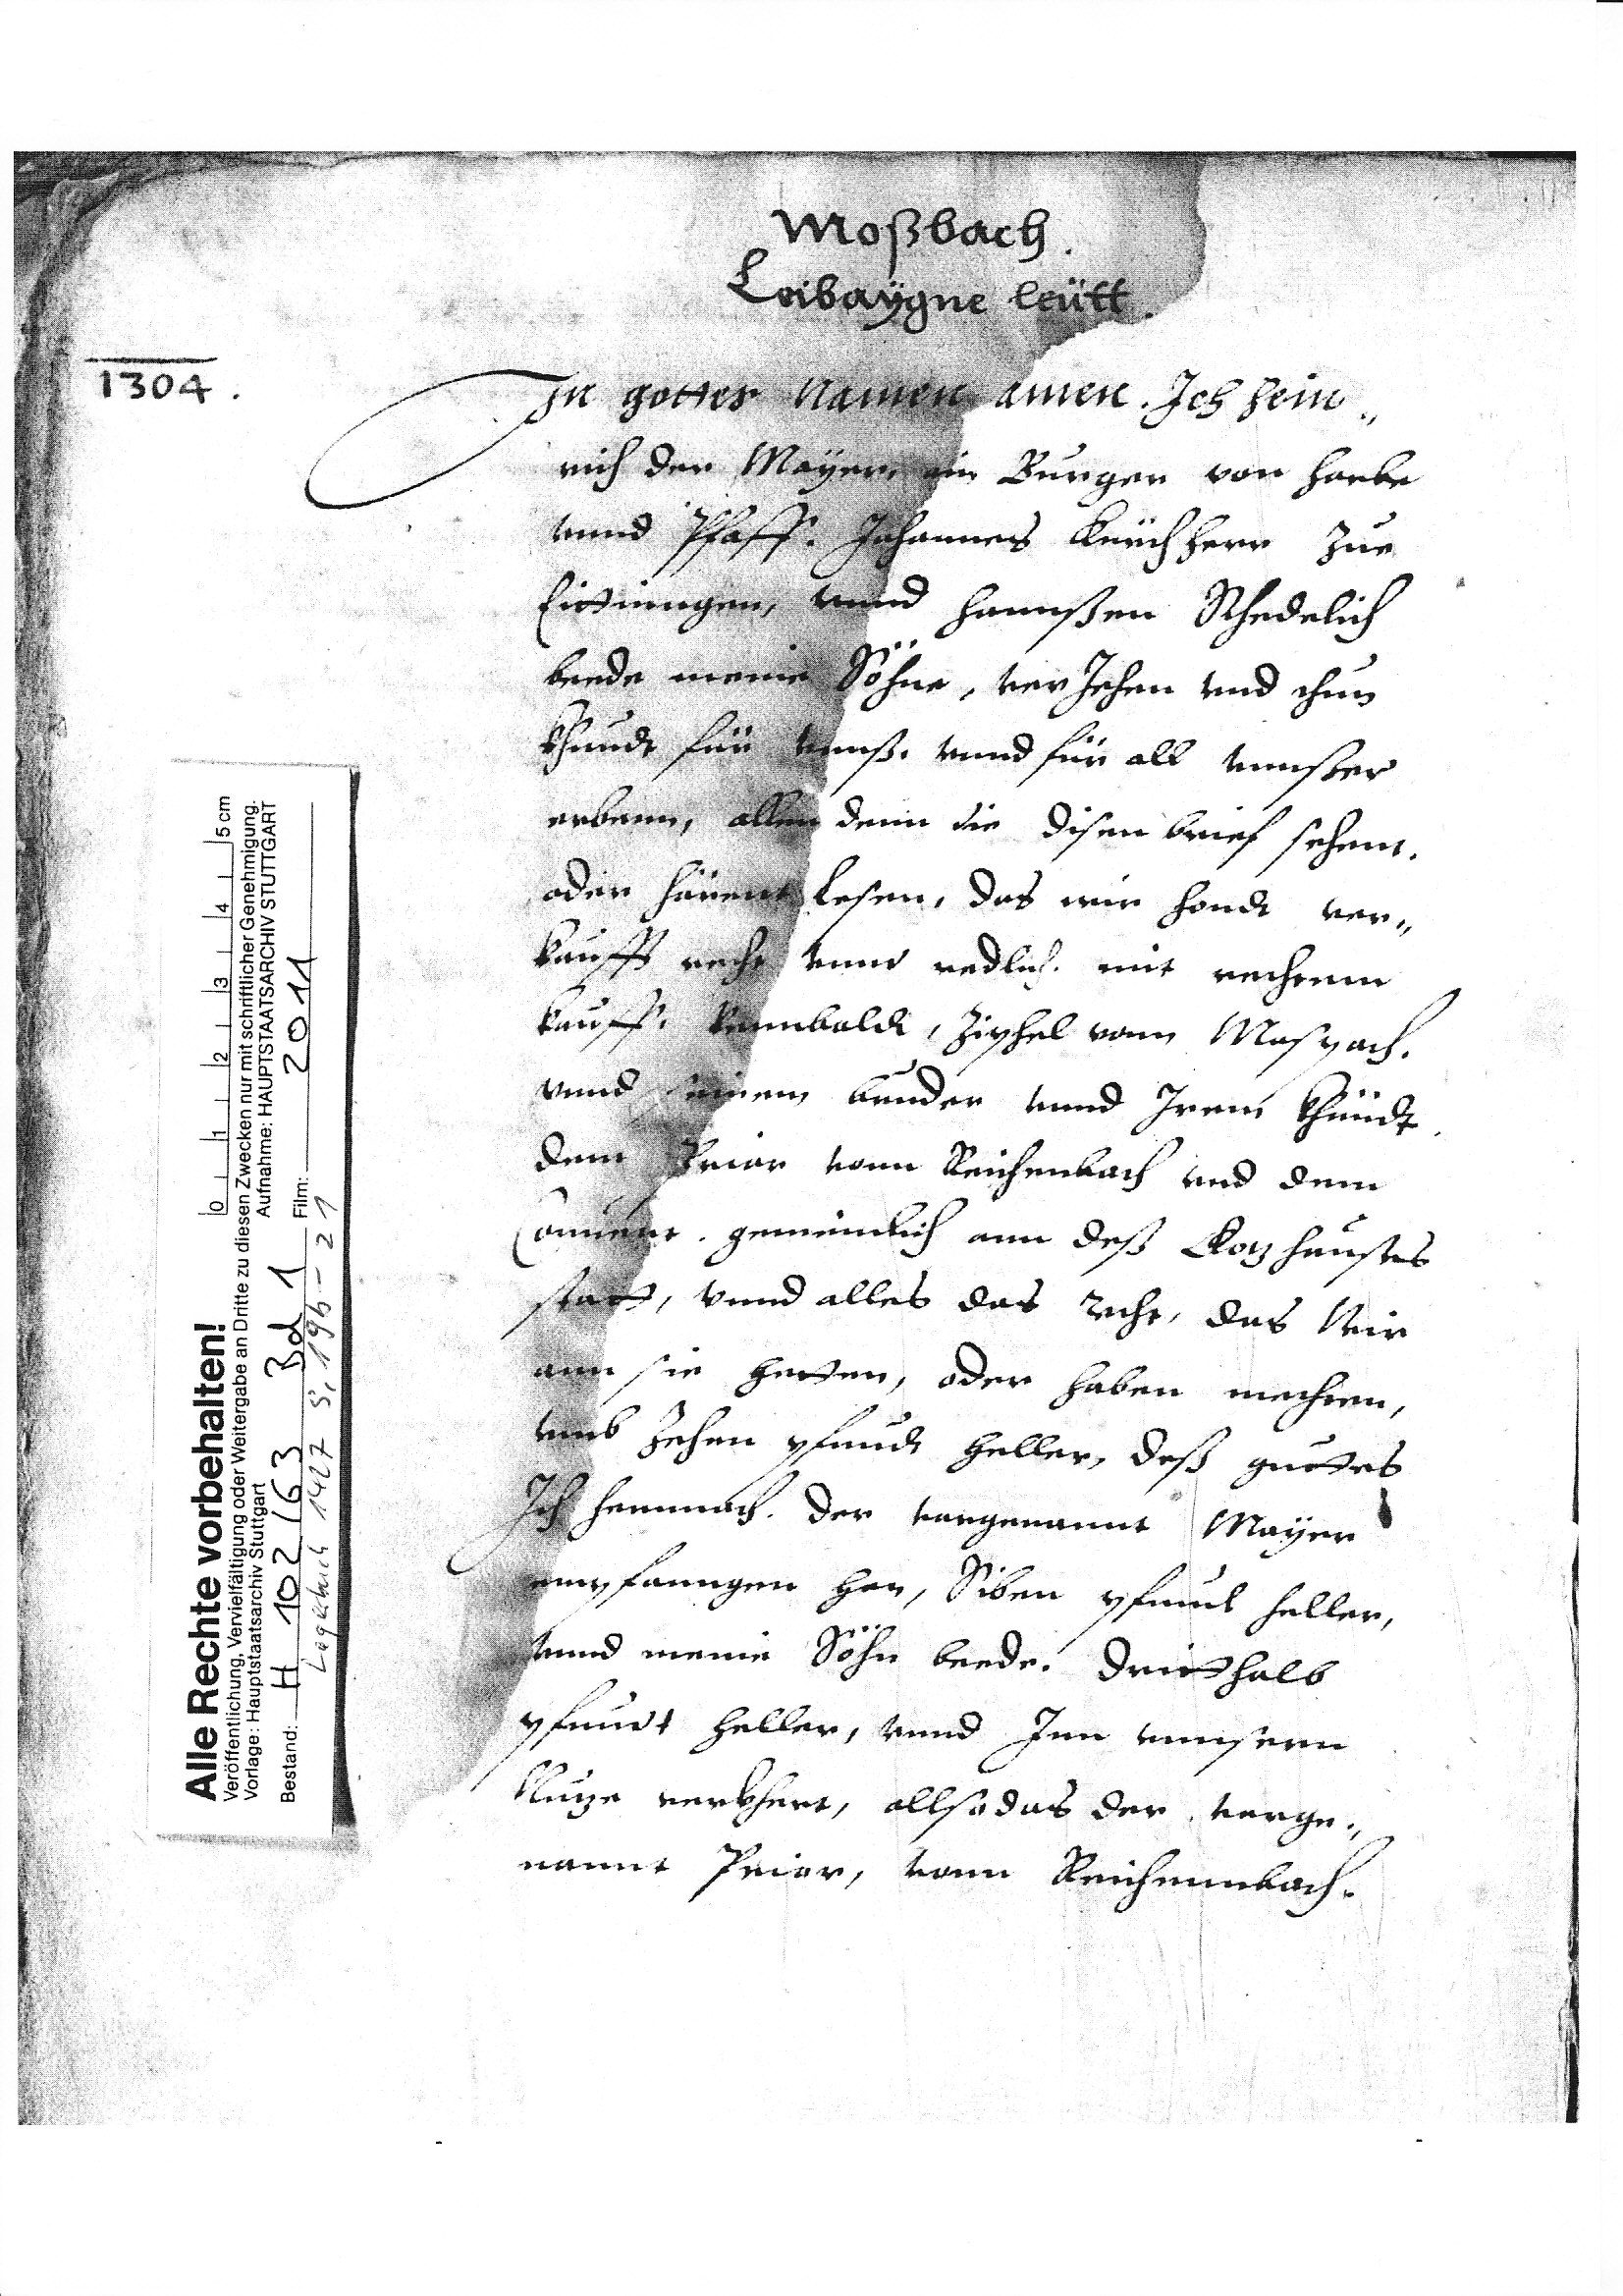 Moßbach.
Leibaÿgne leütt.
1304.
In gottes Namen amen. Ich hein„
rich der Maÿer, ein Burger von Horbe
vnnd Pfaff. Johannes Kürchherr zue
Eittningen, vnnd hannßen Schedelich
beede meine Söhne, ver Jehen vnd thun
khundt für vnnß. vnnd für all vnnßer
erbenn, allen denn die disen brief sehent.
oder hörent lesen, das wir hondt ver„
kaufft recht vnnd redlich. mit rechtem
kauff. Rennboldt, Ziphel vonn Mospach.
vnnd seinem bruder vnnd Irem khündt.
dem Prior vonn Reichenbach vnd dem
Conuent. gemeinlich ann deß Gotzhaußes
statt, vnnd alles das recht, das Wir
ann sie hetten, oder haben mechten,
vmb Zehen pfundt heller, deß guettes
Ich hennrich. der vorgenannt Maÿer
empfanngen han, Siben pfundt heller,
vnnd meine Söhn beede. dritthalb
pfundt heller, vnnd Inn vnnsern
Nutze verkhert, allso das der vorge„
nannt Prior, vonn Reichennbach.
Alle Rechte vorbehalten!
Veröffentlichung, Vervielfältigung oder Weitergabe an Dritte zu diesen Zwecken nur mit schriftlicher Genehmigung.
Vorlage: Hauptstaatsarchiv Stuttgart
Aufnahme: HAUPTSTAATSARCHIV STUTTGART
Bestand: H 102/63 Bd 1
Film: 2011
Lagerbuch 1427 S. 196-21
0 1 2 3 4 5 cm